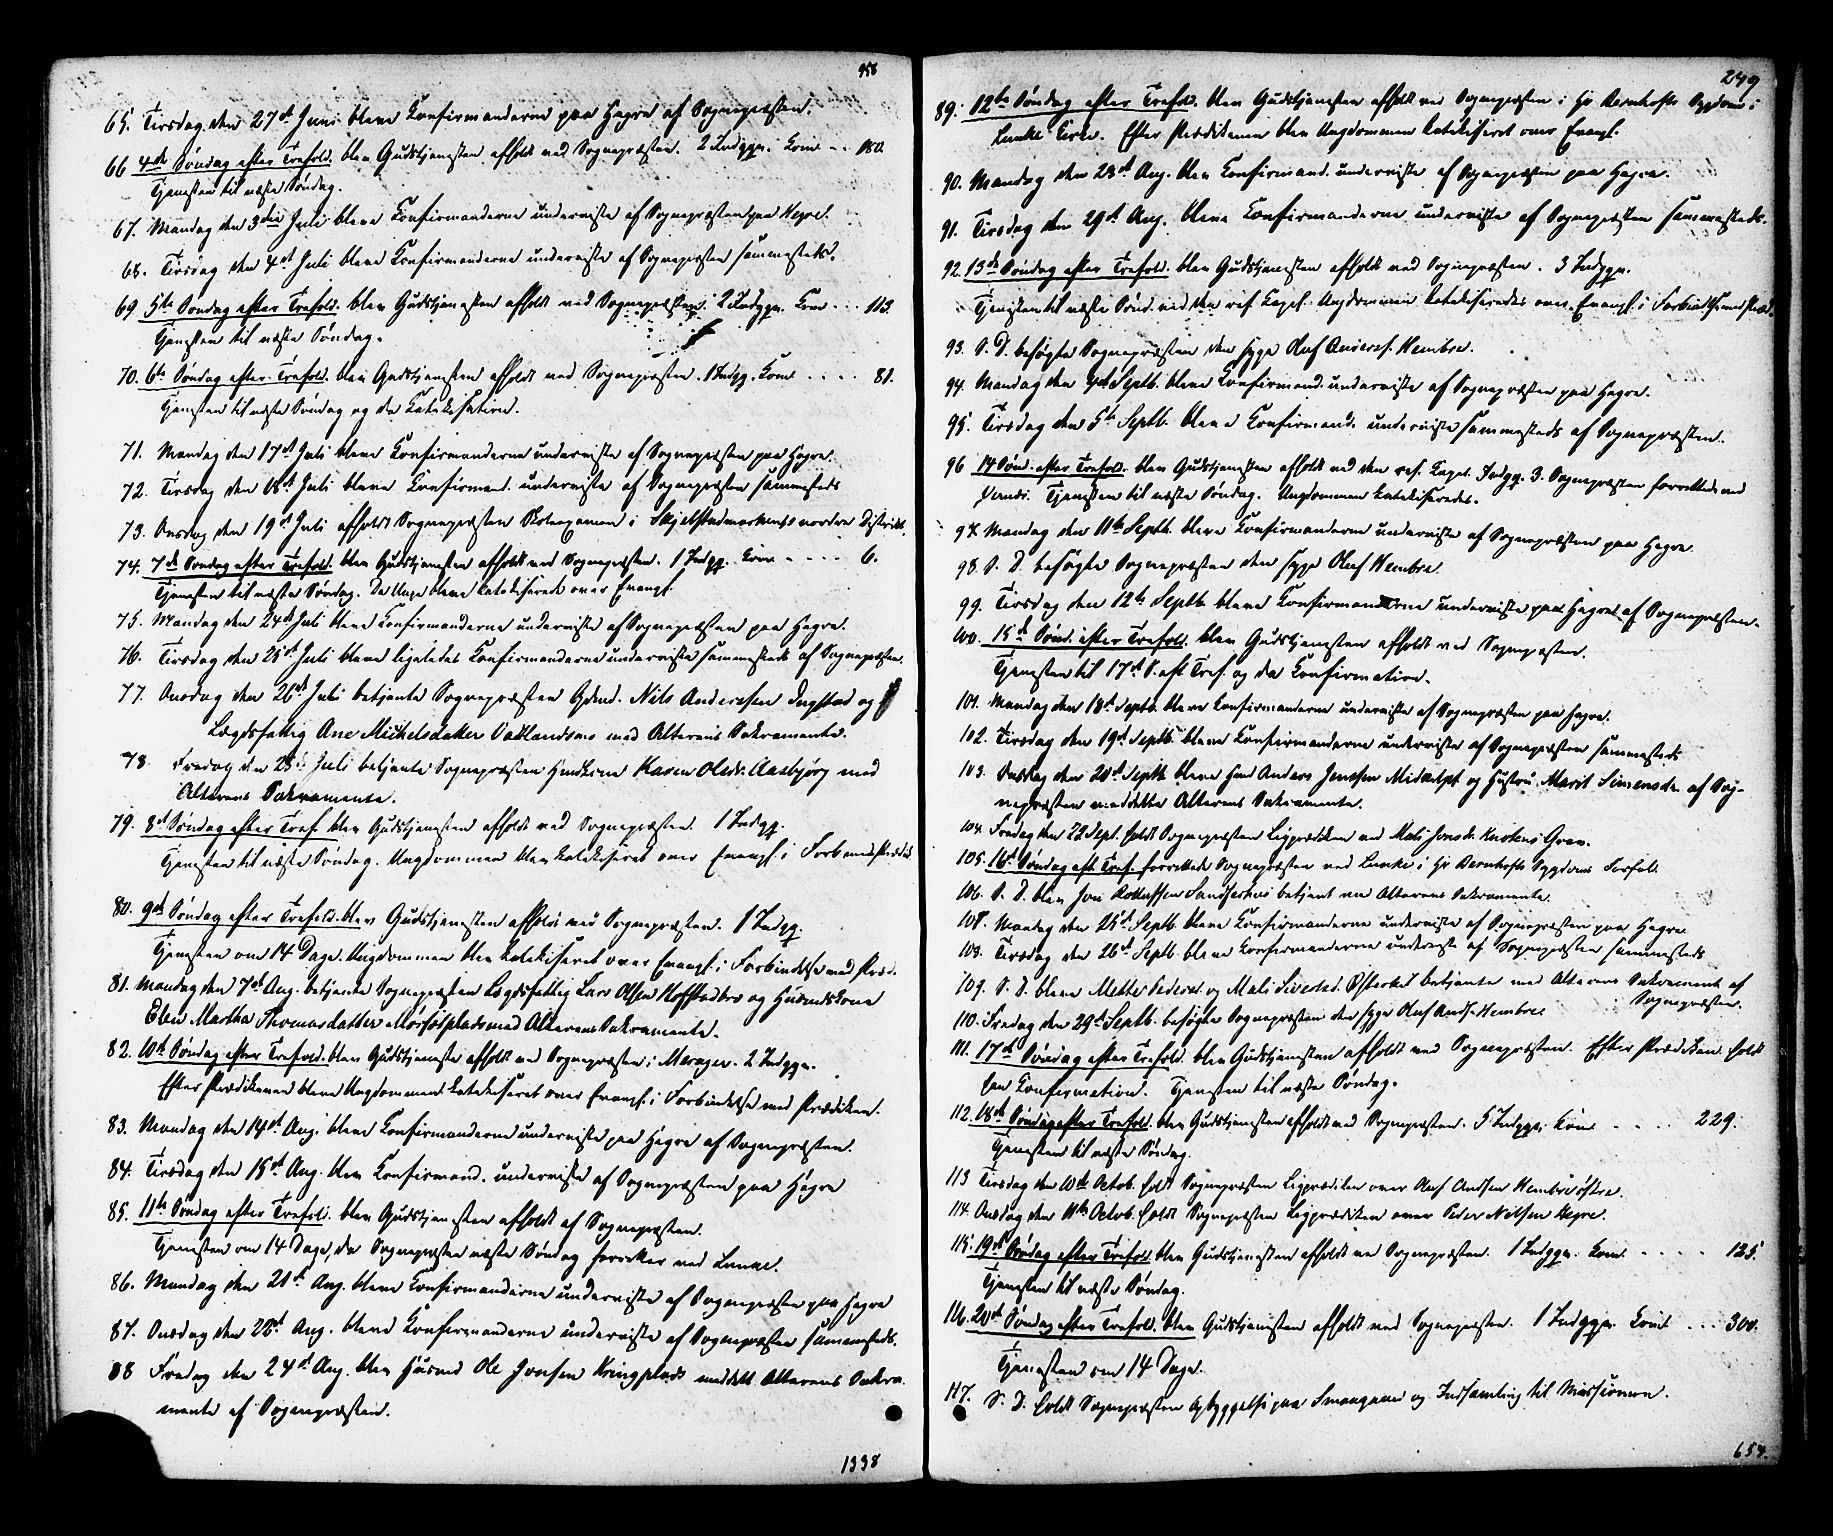 958
65. Tirsdag den 27de Juni bleve Konfirmanderne paa Hegre af Sognepræsten.
66 4de Søndag efter Trefold. blev Gudstjenesten afholdt ved Sognepræsten. 2 Indgge. Kom. - - 180.
Tjenesten til næste Søndag.
67. Mandag den 3die Juli bleve Konfirmanderne underviste af Sognepræsten paa Hegre.
68. Tirsdag den 4de Juli bleve Konfirmanderne underviste af Sognepræsten sammesteds.
69 5te Søndag efter Trefold. blev Gudstjenesten afholdt ved Sognepræsten. 2 Indgge. Kom - - - 113.
Tjenesten til næste Søndag.
70. 6te Søndag efter Trefold. blev Gudstjenesten afholdt ved Sognepræsten. 1 Indgg. Kom - - - - 81.
Tjenesten til næste Søndag og da Katekisation.
71. Mandag den 17de Juli bleve Konfirmanderne underviste af Sognepræsten paa Hegre.
72. Tirsdag den 18de Juli bleve Konfirmand. underviste af Sognepræsten sammesteds
73. Onsdag den 19de Juli afholdt Sognepræsten Skoleexamen i Skjelstadmarkens nordre Distrikt.
74. 7de Søndag efter Trefold. blev Gudstjenesten afholdt ved Sognepræsten. 1 Indgg. Kom - - - - 6.
Tjenesten til næste Søndag. De Unge bleve katekiserede over Evangl.
75. Mandag den 24de Juli bleve Konfirmanderne underviste af Sognepræsten paa Hegre.
76. Tirsdag den 25de Juli bleve ligeledes Konfirmanderne underviste sammesteds af Sognepræsten.
77. Onsdag den 26de Juli betjente Sognepræsten Gdmd. Nils Anderssen Ingstad og
Lægdsfattig Ane Mikkelsdatter Vatlandsmo med Alterens Sakramente.
78. Fredag den 28de Juli betjente Sognepræsten Huskone Karen Olsdr. Aasbjørg med
Alterens Sakramente.
79. 8de Søndag efter Tref. blev Gudstjenesten afholdt ved Sognepræsten. 1 Indgg.
Tjenesten til næste Søndag. Ungdommen blev katekiseret over Evangl. i Forb. med Prædik
80. 9de Søndag efter Trefold. blev Gudstjenesten afholdt ved Sognepræsten. 1 Indgg.
Tjenesten om 14 Dage. Ungdommen blev katekiseret over Evangl. i Forbindelse med Præd.
81. Mandag den 7de Aug. betjente Sognepræsten Lægdsfattig Lars Olsen Hofstadbro og Husmdskone
Elen Martha Thomasdatter Mørsetplads med Alterens Sakramente.
82. 10de Søndag efter Trefold. blev Gudstjeneste afholdt ved Sognepræsten i Merager. 2 Indgge.
Efter Prædikenen bleve Ungdommen katekiseret over Evangl. i Forbindelse med Prædiken.
83. Mandag den 14de Aug. bleve Konfirmanderne underviste paa Hegre af Sognepræsten.
84. Tirsdag den 15de Aug. blev Konfirmand. underviste af Sognepræsten paa Hegre
85. 11te Søndag efter Trefold. blev Gudstjenesten afholdt af Sognepræsten.
Tjenesten om 14 Dage, da Sognepræsten næste Søndag forretter ved Lunke.
86. Mandag den 21de Aug. bleve Konfirmanderne underviste af Sognepræsten paa Hegre
87. Onsdag den 22de Aug. bleve Konfirmanderne underviste af Sognepræsten sammesteds.
88 Fredag den 24de Aug. blev Husmd Ole Jonsen Kringplads meddelt Alterens Sakra-
mente af Sognepræsten.
1338
249
89. 12te Søndag efter Trefold. blev Gudstjenesten afholdt ved Sognepræsten i Hr Bernhofts Sygdom i
Lunke Kirke. Efter Prædikenen blev Ungdommen katekiseret over Evangl.
90. Mandag den 28de Aug. blev Konfirmand. underviste af Sognepræsten paa Hegre.
91. Tirsdag den 29de Aug. bleve Konfirmanderne underviste af Sognepræsten sammesteds.
92. 13de Søndag efter Trefold. blev Gudstjenesten afholdt ved Sognepræsten. 3 Indgge.
Tjenesten til næste Sønd. ved den res. Kapel. Ungdommen katekiseredes over Evangl. i Forbind. med Præd.
93. S. D. besøgte Sognepræsten den syge Oluf Anders. Hembre.
94. Mandag den 4de Septb. bleve Konfirmand. underviste af Sognepræsten paa Hegre.
95. Tirsdag den 5te Septb. bleve Konfirmand. underviste sammesteds af Sognepræsten.
96 14 Sønd. efter Trefold. blev Gudstjenesten afholdt ved den res. Kapel. Indgg. 3. Sognepræsten forrettede ved
Værnes. Tjenesten til næste Søndag. Ungdommen katekiseredes.
97. Mandag den 11te Septb. bleve Konfirmanderne underviste af Sognepræsten paa Hegre.
98. S. D. besøgte Sognepræsten den syge Oluf Hembre.
99. Tirsdag den 12te Septb. bleve Konfirmanderne underviste paa Hegre af Sognepræsten.
100. 15de Sønd. efter Trefold. blev Gudstjenesten afholdt ved Sognepræsten.
Tjenesten til 17de S. eft Tref. og da Konfirmation.
101. Mandag den 18de Septb. bleve Konfirmanderne underviste af Sognepræsten paa Hegre.
102. Tirsdag den 19de Septb. bleve Konfirmanderne underviste af Sognepræsten sammesteds
103. Onsdag den 20de Septb. bleve Hmd Anders Jenssen Midkilpl. og Hustru Marit Simensdr. af Sog-
nepræsten meddelte Alterens Sakramente.
104. Fredag den 22 Sept. holdt Sognepræsten Ligprædiken ved Mali Jonsdr. Kustens Grav.
105. 16de Søndag eft. Tref. forrettede Sognepræsten ved Lunke i Hr Bernhofts Sygdoms Forfald.
106. S. D. blev Jon betjent med Alterens Sakramente.
107. Mandag den 25de Septb. bleve Konfirmanderne underviste af Sognepræsten paa Hegre
108. Tirsdag den 26de Septb. bleve Konfirmanderne underviste af Sognepræsten sammesteds
109. S. D. bleve Mette Pedersd. og Mali Sivertsd. betjente med Alterens Sakrament af
Sognepræsten.
110. Fredag den 29de Septb. besøgte Sognepræsten den syge Oluf Ands. Hembre
111. 17de Søndag efter Trefold. blev Gudstjenesten afholdt ved Sognepræsten. Efter Prædiken holdt
han Konfirmation. Tjenesten til næste Søndag.
112. 18de Søndag efter Trefold. blev Gudstjenesten afholdt ved Sognepræsten. 5 Indgge. Kom - - - - 229.
Tjenesten til næste Søndag.
113 Tirsdag den 10de Octob. holdt Sognepræsten Ligprædiken over Oluf Andsen Hembre østre.
114. Onsdag den 11te Octob. holdt Sognepræsten Ligprædiken over Peder Nilsen Hegre.
115. 19de Søndag efter Trefold. blev Gudstjenesten afholdt ved Sognepræsten. 1 Indgge. Kom. - - - - 125.
Tjenesten til næste Søndag.
116. 20de Søndag efter Trefold. blev Gudstjenesten afholdt ved Sognepræsten. 1 Indgge. Kom - - - 300.
Tjenesten om 14 Dage.
117. S. D. holdt Sognepræsten Opbyggelse paa og Indsamling til Missionen.
654.